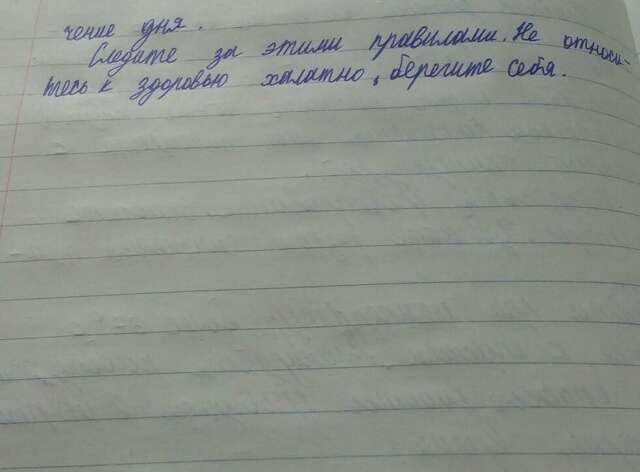 чение дня.
Следите за этими правилами. Не относи-
тесь к здоровью халатно, берегите себя.